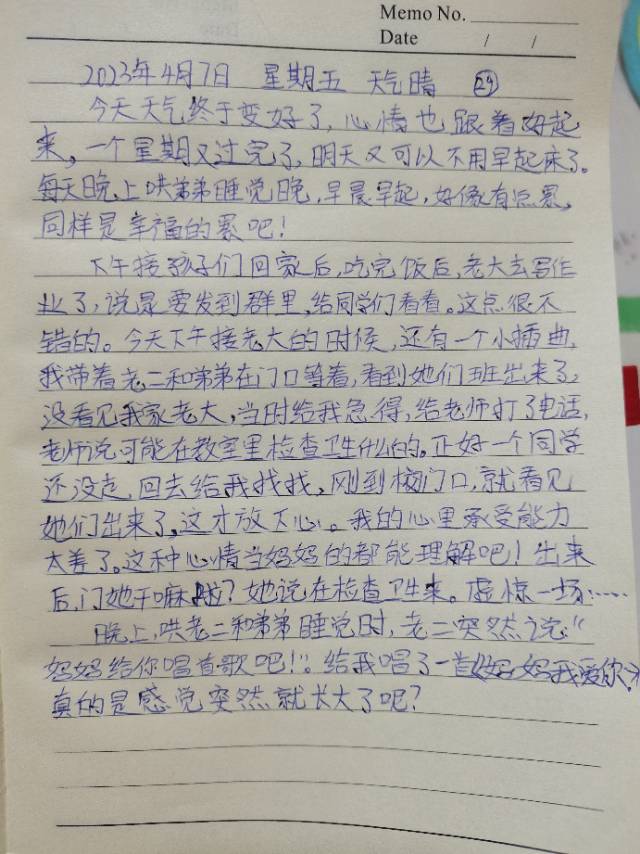 Memo No.
Date / /
2023年4月7日 星期五 天气晴 29
今天天气终于变好了,心情也跟着好起
来,一个星期又过完了,明天又可以不用早起床了。
每天晚上哄弟弟睡觉晚,早晨早起,好像有点累,
同样是幸福的累吧!
下午接孩子们回家后,吃完饭后,老大去写作
业了,说是要发到群里,给同学们看看。这点很不
错的。今天下午接老大的时候,还有一个小插曲,
我带着老二和弟弟在门口等着,看到她们班出来了,
没看见我家老大,当时给我急得,给老师打了电话,
老师说可能在教室里检查卫生什么的。正好一个同学
还没走,回去给我找找,刚到校门口,就看见
她们出来了,这才放下心。我的心里承受能力
太差了。这种心情当妈妈的都能理解吧!出来
后,门她干嘛啦?她说在检查卫生来。虚惊一场……
晚上,哄老二和弟弟睡觉时,老二突然说:“
妈妈给你唱首歌吧!”。给我唱了一首《妈妈我爱你》
真的是感觉突然就长大了呢?